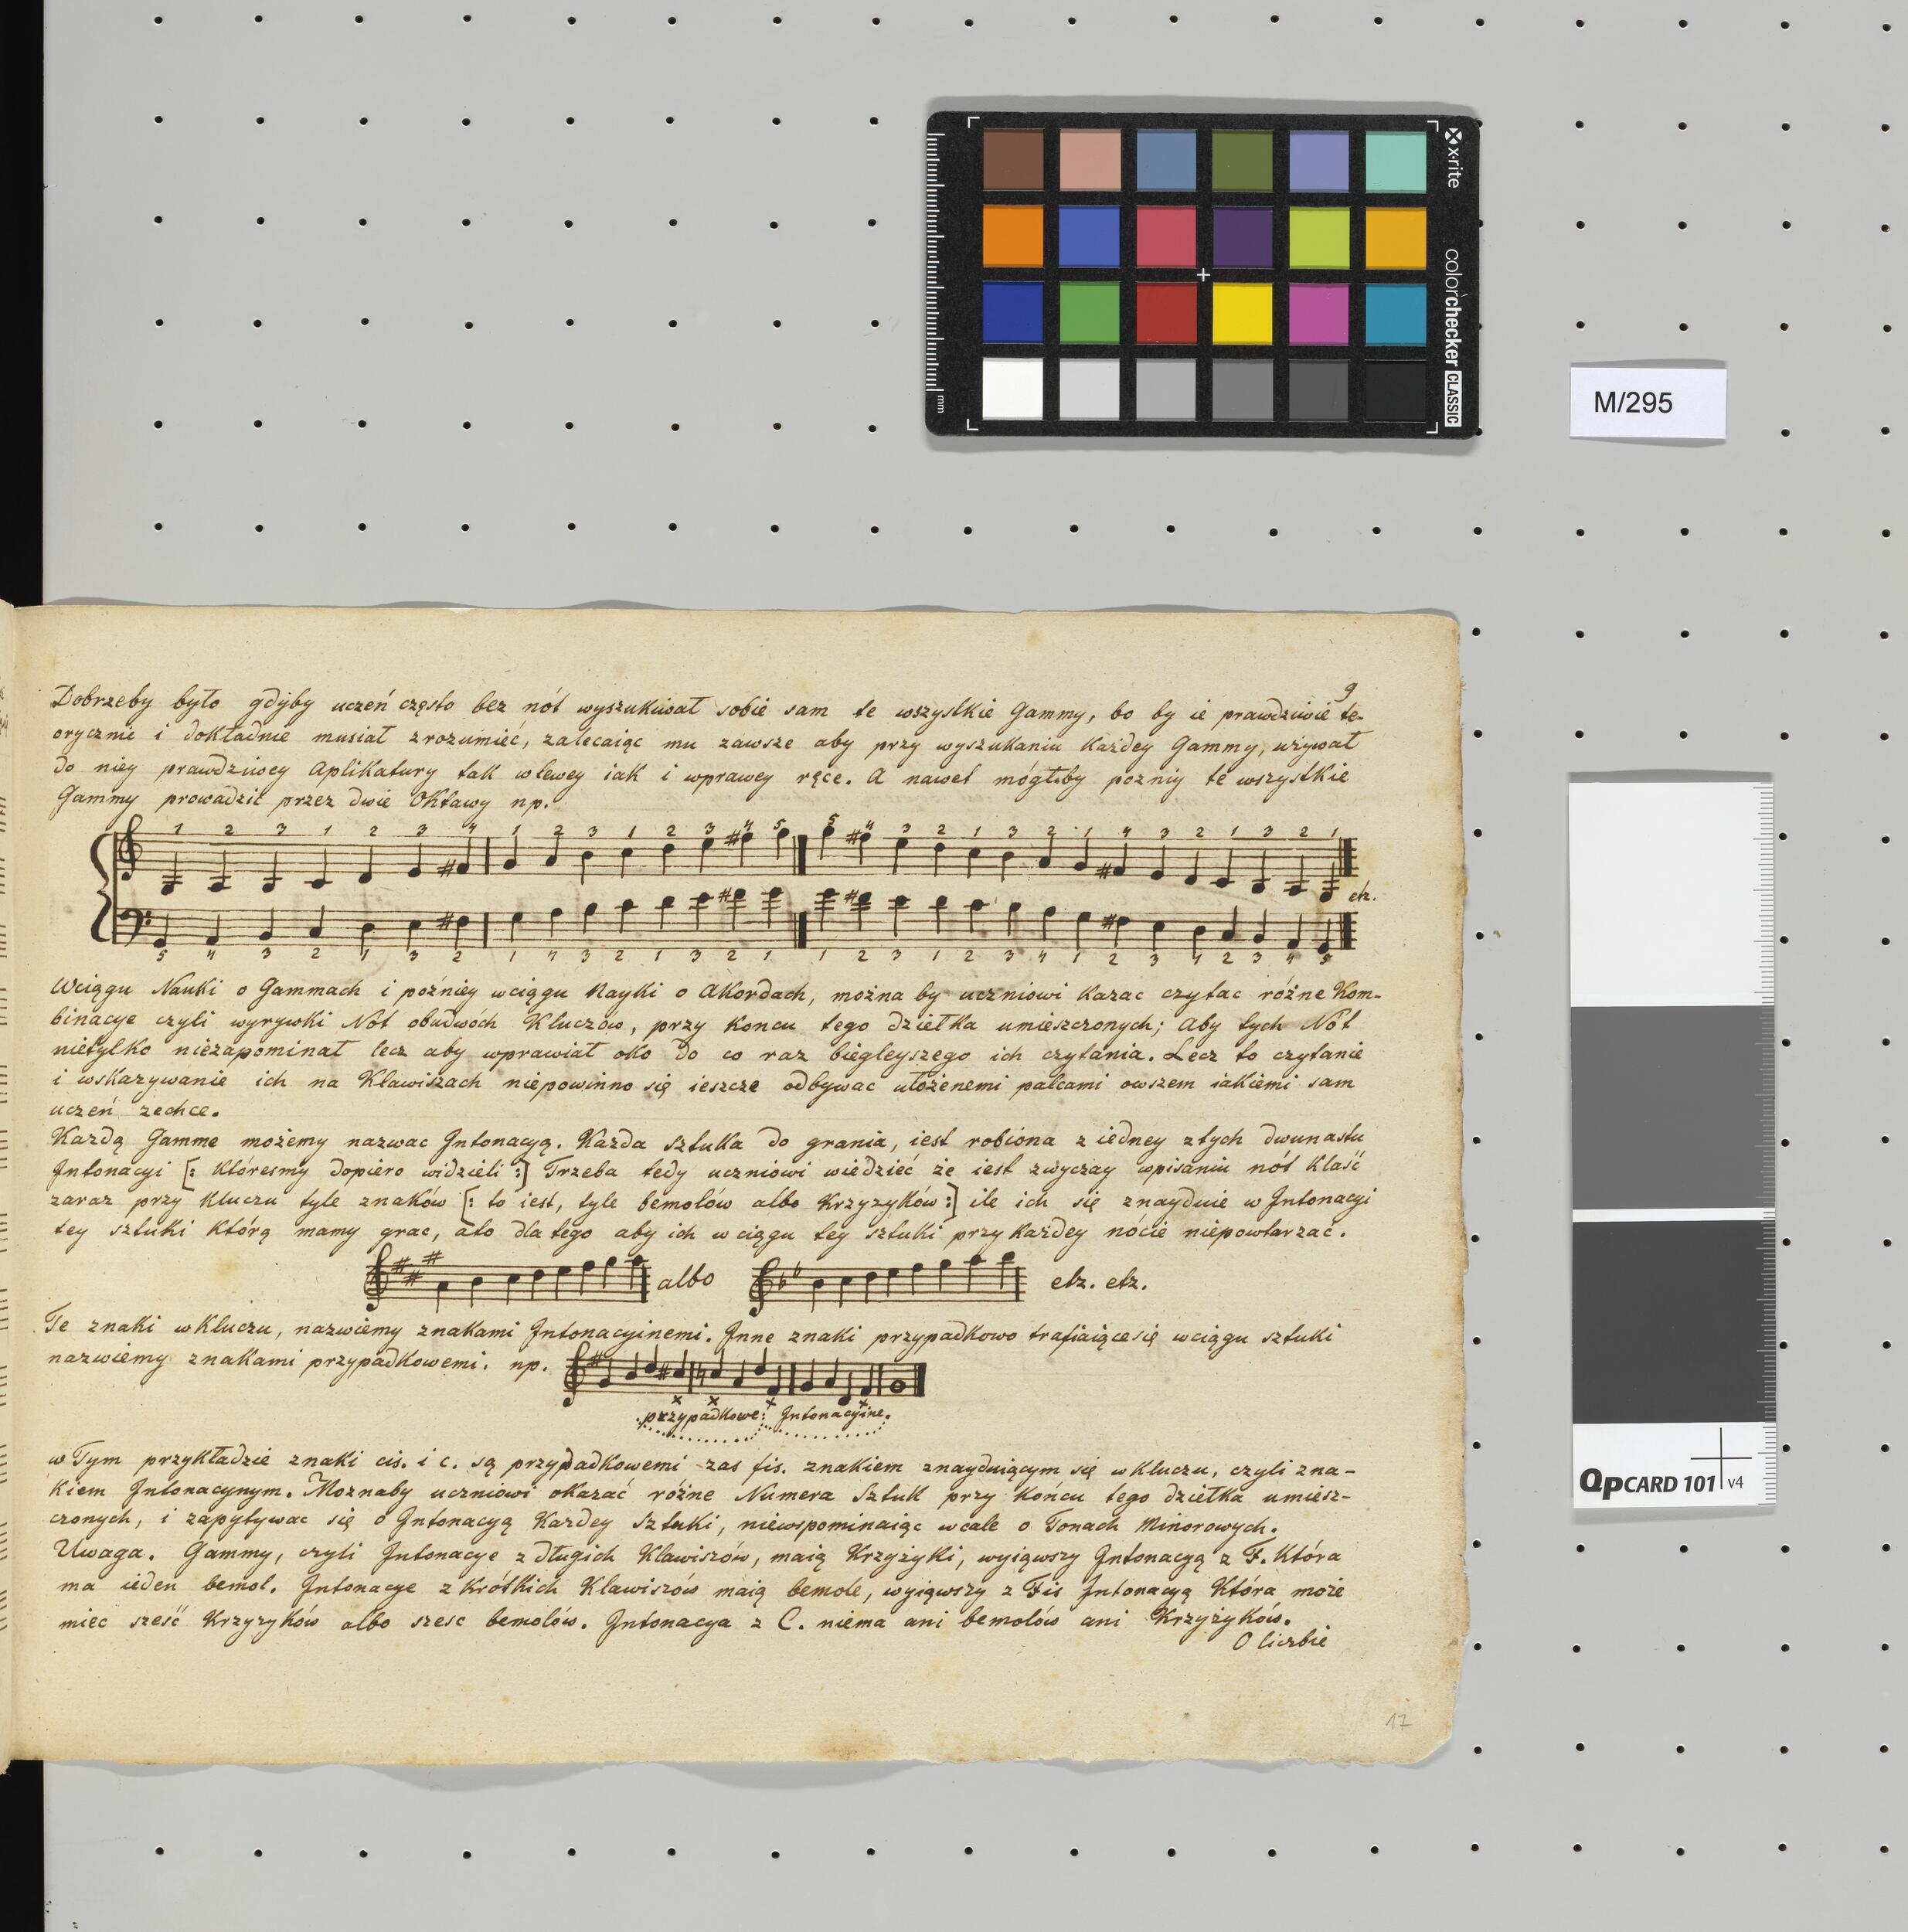 x-rite
colorchecker CLASSIC
mm
M/295
9
Dobrzeby było gdyby uczeń często bez nót wyszukiwał sobie sam te wszystkie Gammy, bo by ie prawdziwie te-
orycznie i dokładnie musiał zrozumieć, zalecaiąc mu zawsze aby przy wyszukaniu każdey Gammy, używał
do niey prawdziwey Aplikatury tak wlewey iak i wprawey ręce. A nawet mógłby pozniy te wszystkie
Gammy prowadzić przez dwie Oktawy np.
1 2 3 1 2 3 4 1 2 3 1 2 3 4 5 5 4 3 2 1 3 2 1 4 3 2 1 3 2 1
etz.
5 4 3 2 1 3 2 1 4 3 2 1 3 2 1 1 2 3 1 2 3 4 1 2 3 4 2 3 4 5
Wciągu Nauki o Gammach i pożniey wciągu Nayki o Akordach, można by uczniowi kazac czytac różne Kom-
binacye czyli wyrywki Not obudwóch Kluczów, przy koncu tego dziełka umieszczonych; Aby tych Nót
nietylko niezapominał lecz aby wprawiał oko do co raz biegleyszego ich czytania. Lecz to czytanie
i wskazywanie ich na Klawiszach niepowinno się ieszcze odbywac ułożenemi palcami owszem iakiemi sam
uczeń zechce.
Każdą Gamme możemy nazwac Jntonacyą. Każda sztuka do grania, iest robiona z iedney ztych dwunastu
Jntonacyi [: któresmy dopiero widzieli :] Trzeba tedy uczniowi wiedzieć że iest zwyczay wpisaniu nót klaść
zaraz przy kluczu tyle znaków [: to iest, tyle bemolów albo krzyzyków :] ile ich się znayduie w Jntonacyi
tey sztuki którą mamy grac, ato dla tego aby ich w ciągu tey sztuki przy każdey nócie niepowtarzać.
albo etz. etz.
Te znaki wkluczu, nazwiemy znakami Jntonacyinemi. Jnne znaki przypadkowo trafiaiącesię wciągu sztuki
nazwiemy znakami przypadkowemi. np.
x x x x
przypadkowe: Jntonacyine.
w Tym przykładzie znaki cis. i c. są przypadkowemi zas fis. znakiem znayduiącym się wkluczu, czyli zna-
kiem Jntonacynym. Moznaby uczniowi okazać różne Numera Sztuk przy końcu tego dziełka umiesz-
czonych, i zapytywac się o Jntonacyą Kazdey Sztuki, niewspominaiąc wcale o Tonach Minorowych.
Uwaga. Gammy, czyli Jntonacye z długich Klawiszów, maią Krzyżyki, wyiąwszy Jntonacyą z F. Która
ma ieden bemol. Jntonacye z krótkich Klawiszów maią bemole, wyiąwszy z Fis Jntonacyą Która może
miec sześć Krzyzyków albo szesc bemolów. Jntonacya z C. niema ani bemolów ani Krzyżyków.
O liczbie
17
QpCARD 101 v4